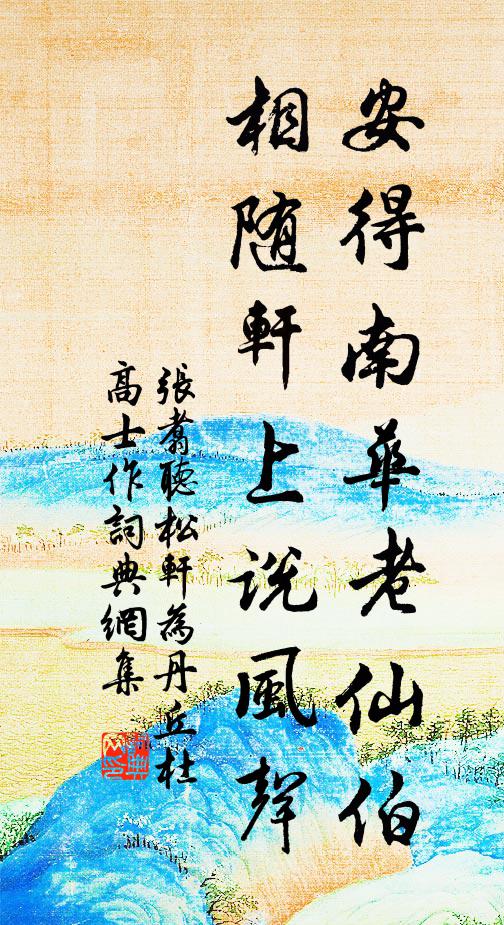 安得南華老仙伯
相随軒上説風聲
張翥聽松軒為丹丘杜
高士作詞典網集